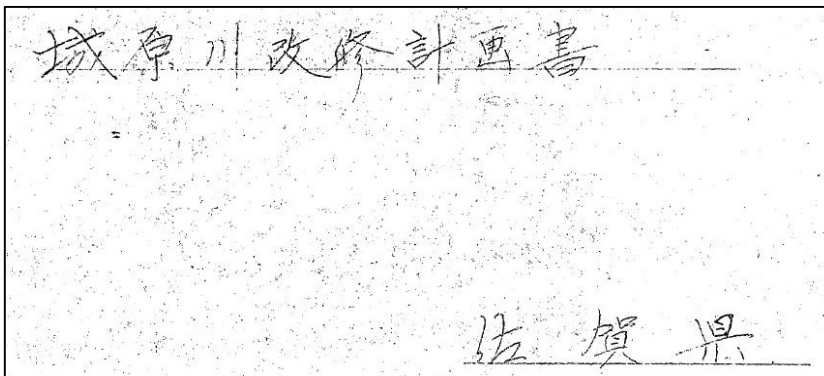 城原川改修計画書
佐賀県